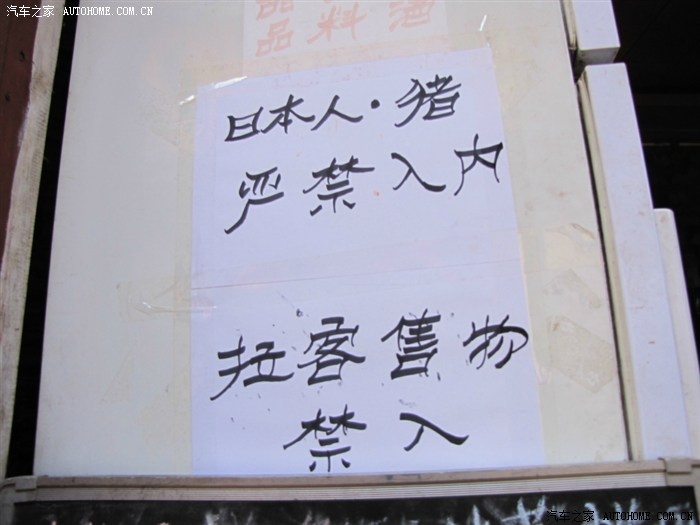 汽车之家 AUTOHOME.COM.CN
品 料 酒
日本人·猪
严禁入内
拉客售物
禁入
汽车之家 AUTOHOME.COM.CN